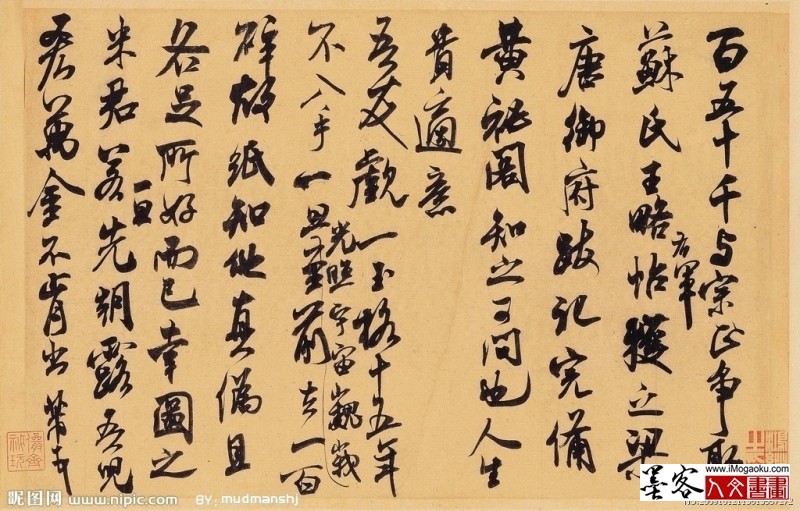 百五十千与宗正争取
蘇氏王略帖獲之梁
右軍
唐御府跋記完備
黄祕閣知之可問也人生
貴適意
吾友覷一玉格十五年
不入手一旦至前去一百
光照宇宙巍峩
碎故紙知他真偽且
各足所好而已幸圖之
米君若先朝露吾兒
一旦
吝萬金不肯出芾
昵图网 www.nipic.com BY: mudmanshj
www.iMogaoku.com
墨客人文書畫